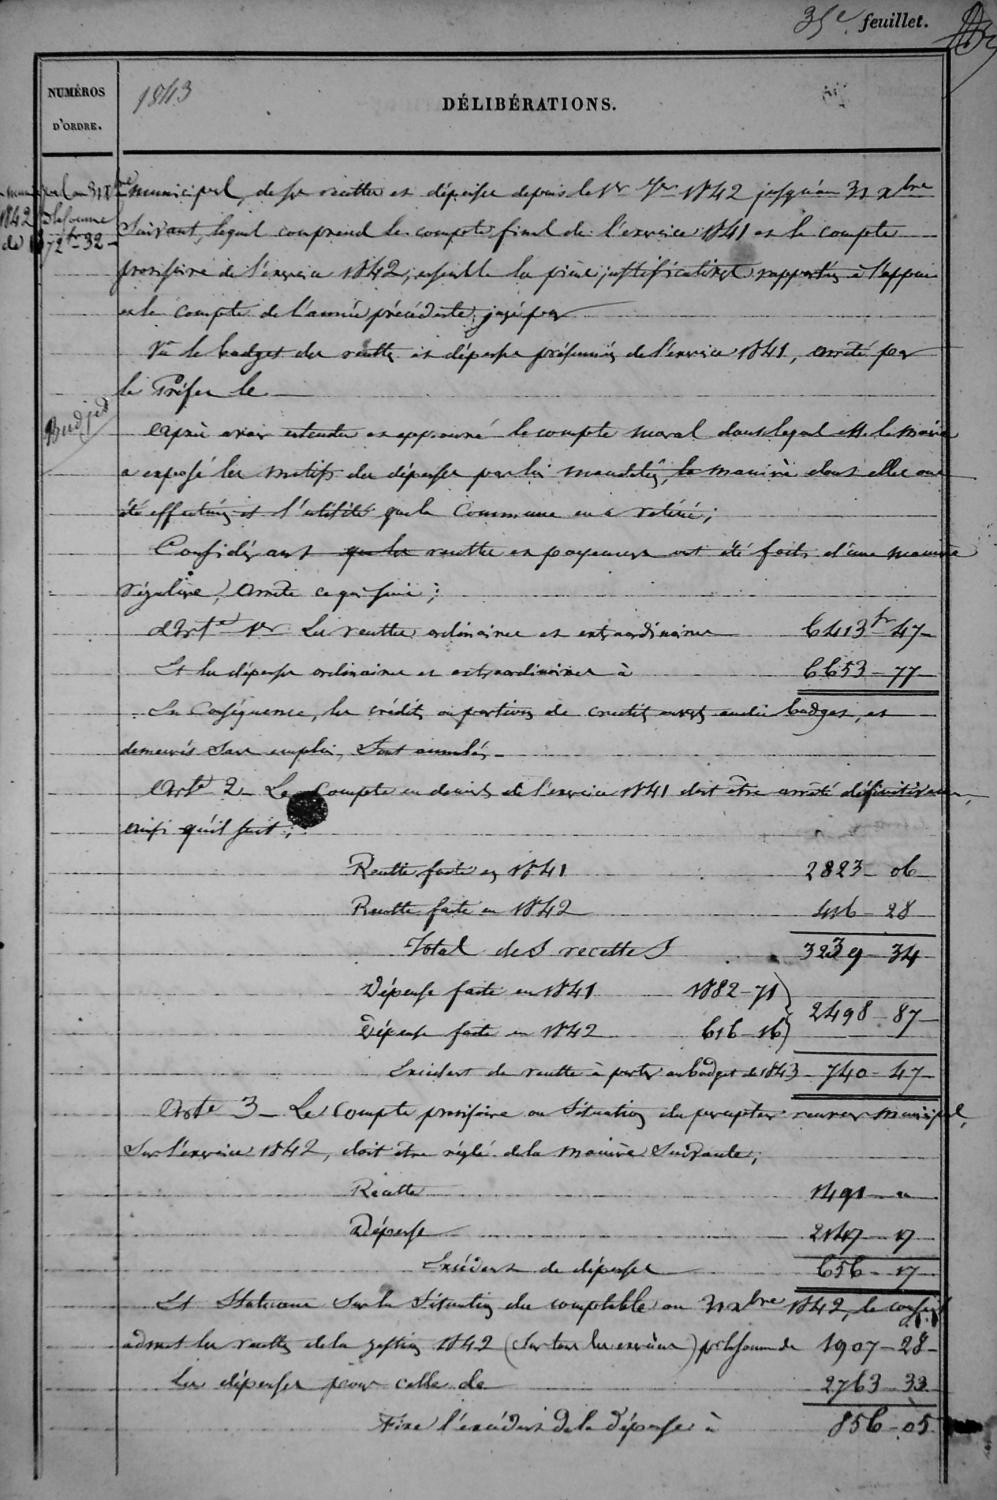 35e feuillet.
NUMÉROS
D'ORDRE.
1843
DÉLIBÉRATIONS.
1842
de
72 fr 32
municipal, de ses recettes et dépenses depuis le 1er Jer 1842 jusqu'au 31 xbre
Suivant, lequel comprend le compte final de l'exercice 1841 et le compte
provisoire de l'exercice 1842, ensemble les pièces justificatives rapportées à l'appui
et le compte de l'année précédente, jugé par
Vu le budget des recettes et dépenses présumées de l'exercice 1841, arrêté par
le Préfet le
Budjed
Après avoir entendu et approuvé le compte moral dans lequel Mr le Maire
a exposé les motifs des dépenses par lui mandatées, la manière dont elles ont
été effectuées et l'utilité que la Commune en a retiré;
Considérant que les recettes et payements ont été faits d'une manière
régulière, Arrête ce qui suit;
Arte 1er Les recettes ordinaires et extraordinaires 6413 fr 47
Et les dépenses ordinaires et extraordinaires à 6653 - 77
En Conséquence, les crédits ou portions de crédits ouverts audit budget, et
demeurés sans emploi, Sont annulés.
Arte 2. Le Compte en deniers de l'exercice 1841 doit être arrêté définitivement,
ainsi qu'il suit;
Recette faite en 1841 2823 - 06
Recette faite en 1842 416 - 28
Total des recettes 3239 - 34
Dépense faite en 1841 1882 - 71
2498 - 87
Dépense faite en 1842 616 - 16
Excédent de recette à porter au budget de 1843 - 740 - 47
Arte 3 - Le Compte provisoire ou Situation du percepteur receveur Municipal,
Sur l'exercice 1842, doit être réglé de la manière Suivante;
Recette 1491 - "
Dépense 2147 - 17
Excédent de dépense 656 - 17
Et Statuant Sur la Situation du comptable au 31 xbre 1842, le conseil
admet les recettes de la gestion 1842 (Sur tous les exercices) pr la somme de 1907 - 28
Les dépenses pour celle de 2763 - 33
Fixe l'excédent de la dépense à 856 - 05